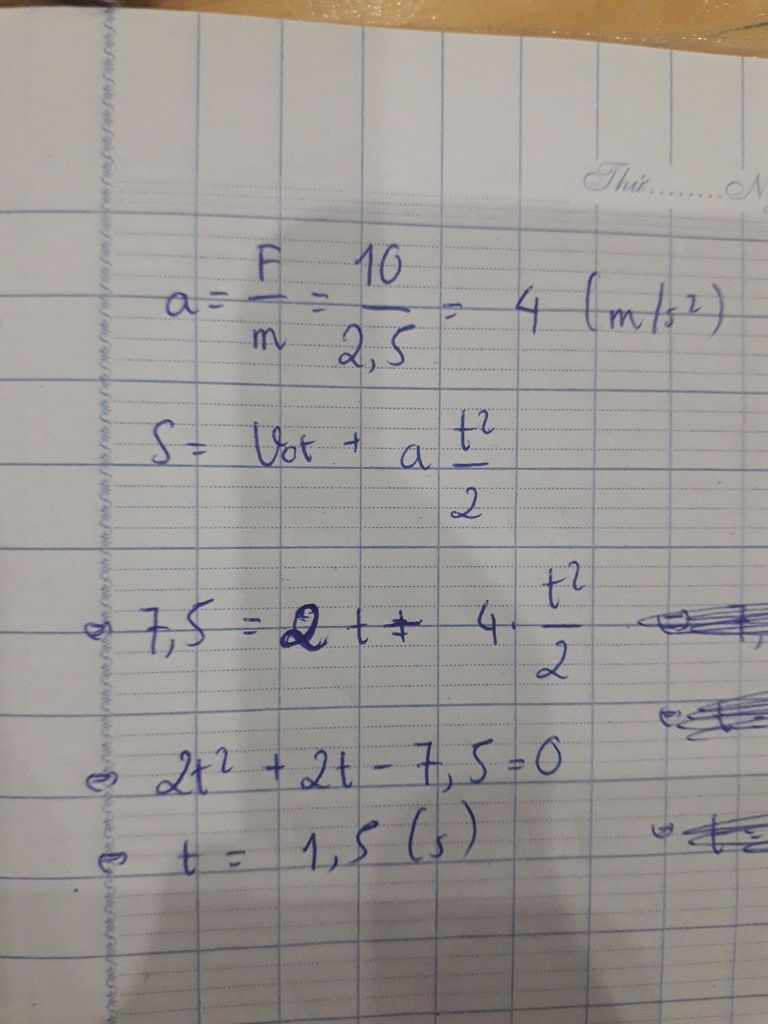 Thứ........N
a = F/m = 10/2,5 = 4 (m/s²)
S = V₀t + a t²/2
⇔ 7,5 = 2 t + 4 . t²/2
⇔ 2t² + 2t - 7,5 = 0
⇔ t = 1,5 (s)